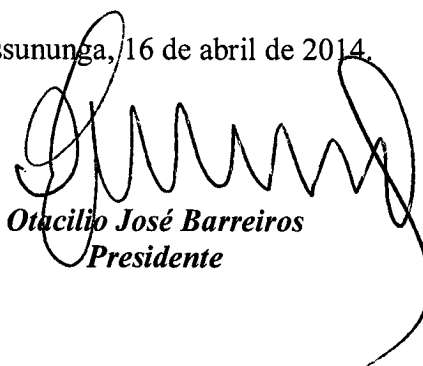 ssununga, 16 de abril de 2014.
Otacilio José Barreiros
Presidente